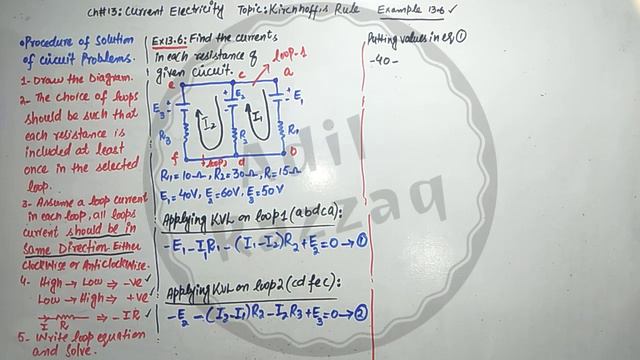 Ch#13: Current Electricity Topic: Kirchhoff's Rule Example 13.6 ✓
•Procedure of Solution
of circuit Problems.
1- Draw the Diagram.
2- The choice of loops
should be such that
each resistance is
included at least
once in the selected
loop.
3- Assume a loop current
in each loop, all loops
current should be in
Same Direction Either
Clockwise or Anticlockwise.
4- High → Low ⇒ -ve ✓
Low → High ⇒ +ve ✓
I R ⇒ -IR ✓
5- Write loop equation
and Solve.
Ex13.6: Find the currents
in each resistance of
given circuit.
loop-1
e c a
E3 E2 E1
I2 I1
R3 R1
f loop2 d b
R1=10Ω, R2=30Ω, R=15Ω
E1=40V, E2=60V, E3=50V
Applying KVL on loop1 (abdca):
-E1-I1R1-(I1-I2)R2+E2=0→①
Applying KVL on loop2 (cdfec):
-E2-(I2-I1)R2-I2R3+E3=0→②
Putting values in eq ①
-40-
Adil
Razzaq